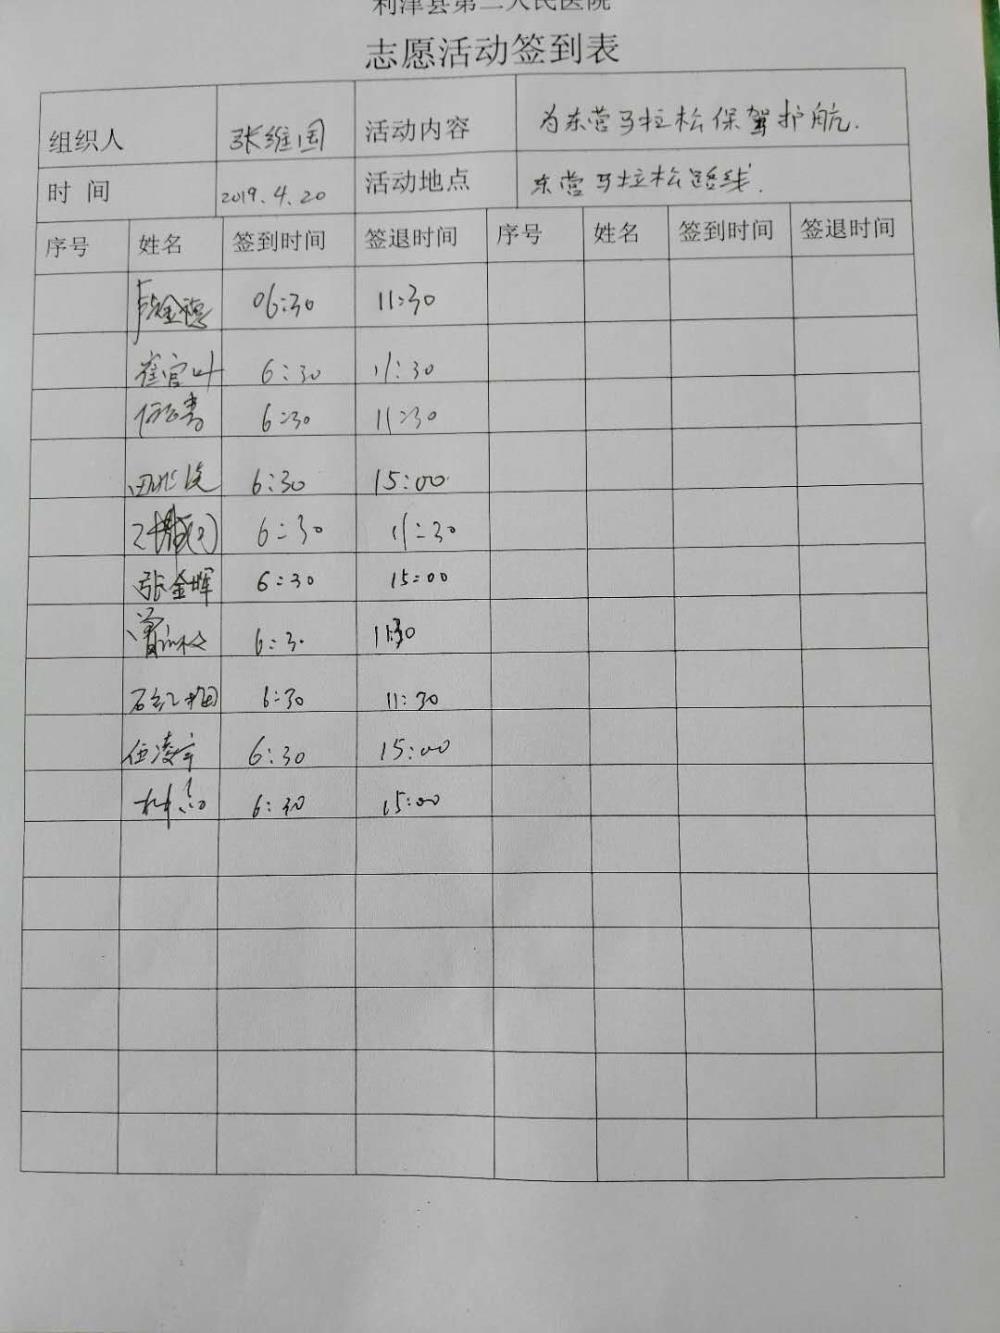 利津县第二人民医院
志愿活动签到表
组织人 张维国 活动内容 为东营马拉松保驾护航.
时 间 2019.4.20 活动地点 东营马拉松路线.
序号 姓名 签到时间 签退时间 序号 姓名 签到时间 签退时间
06:30 11:30
崔官叶 6:30 11:30
6:30 11:30
6:30 15:00
6:30 11:30
张金晖 6:30 15:00
6:30 11:30
石红梅 6:30 11:30
伍凌宇 6:30 15:00
6:30 15:00